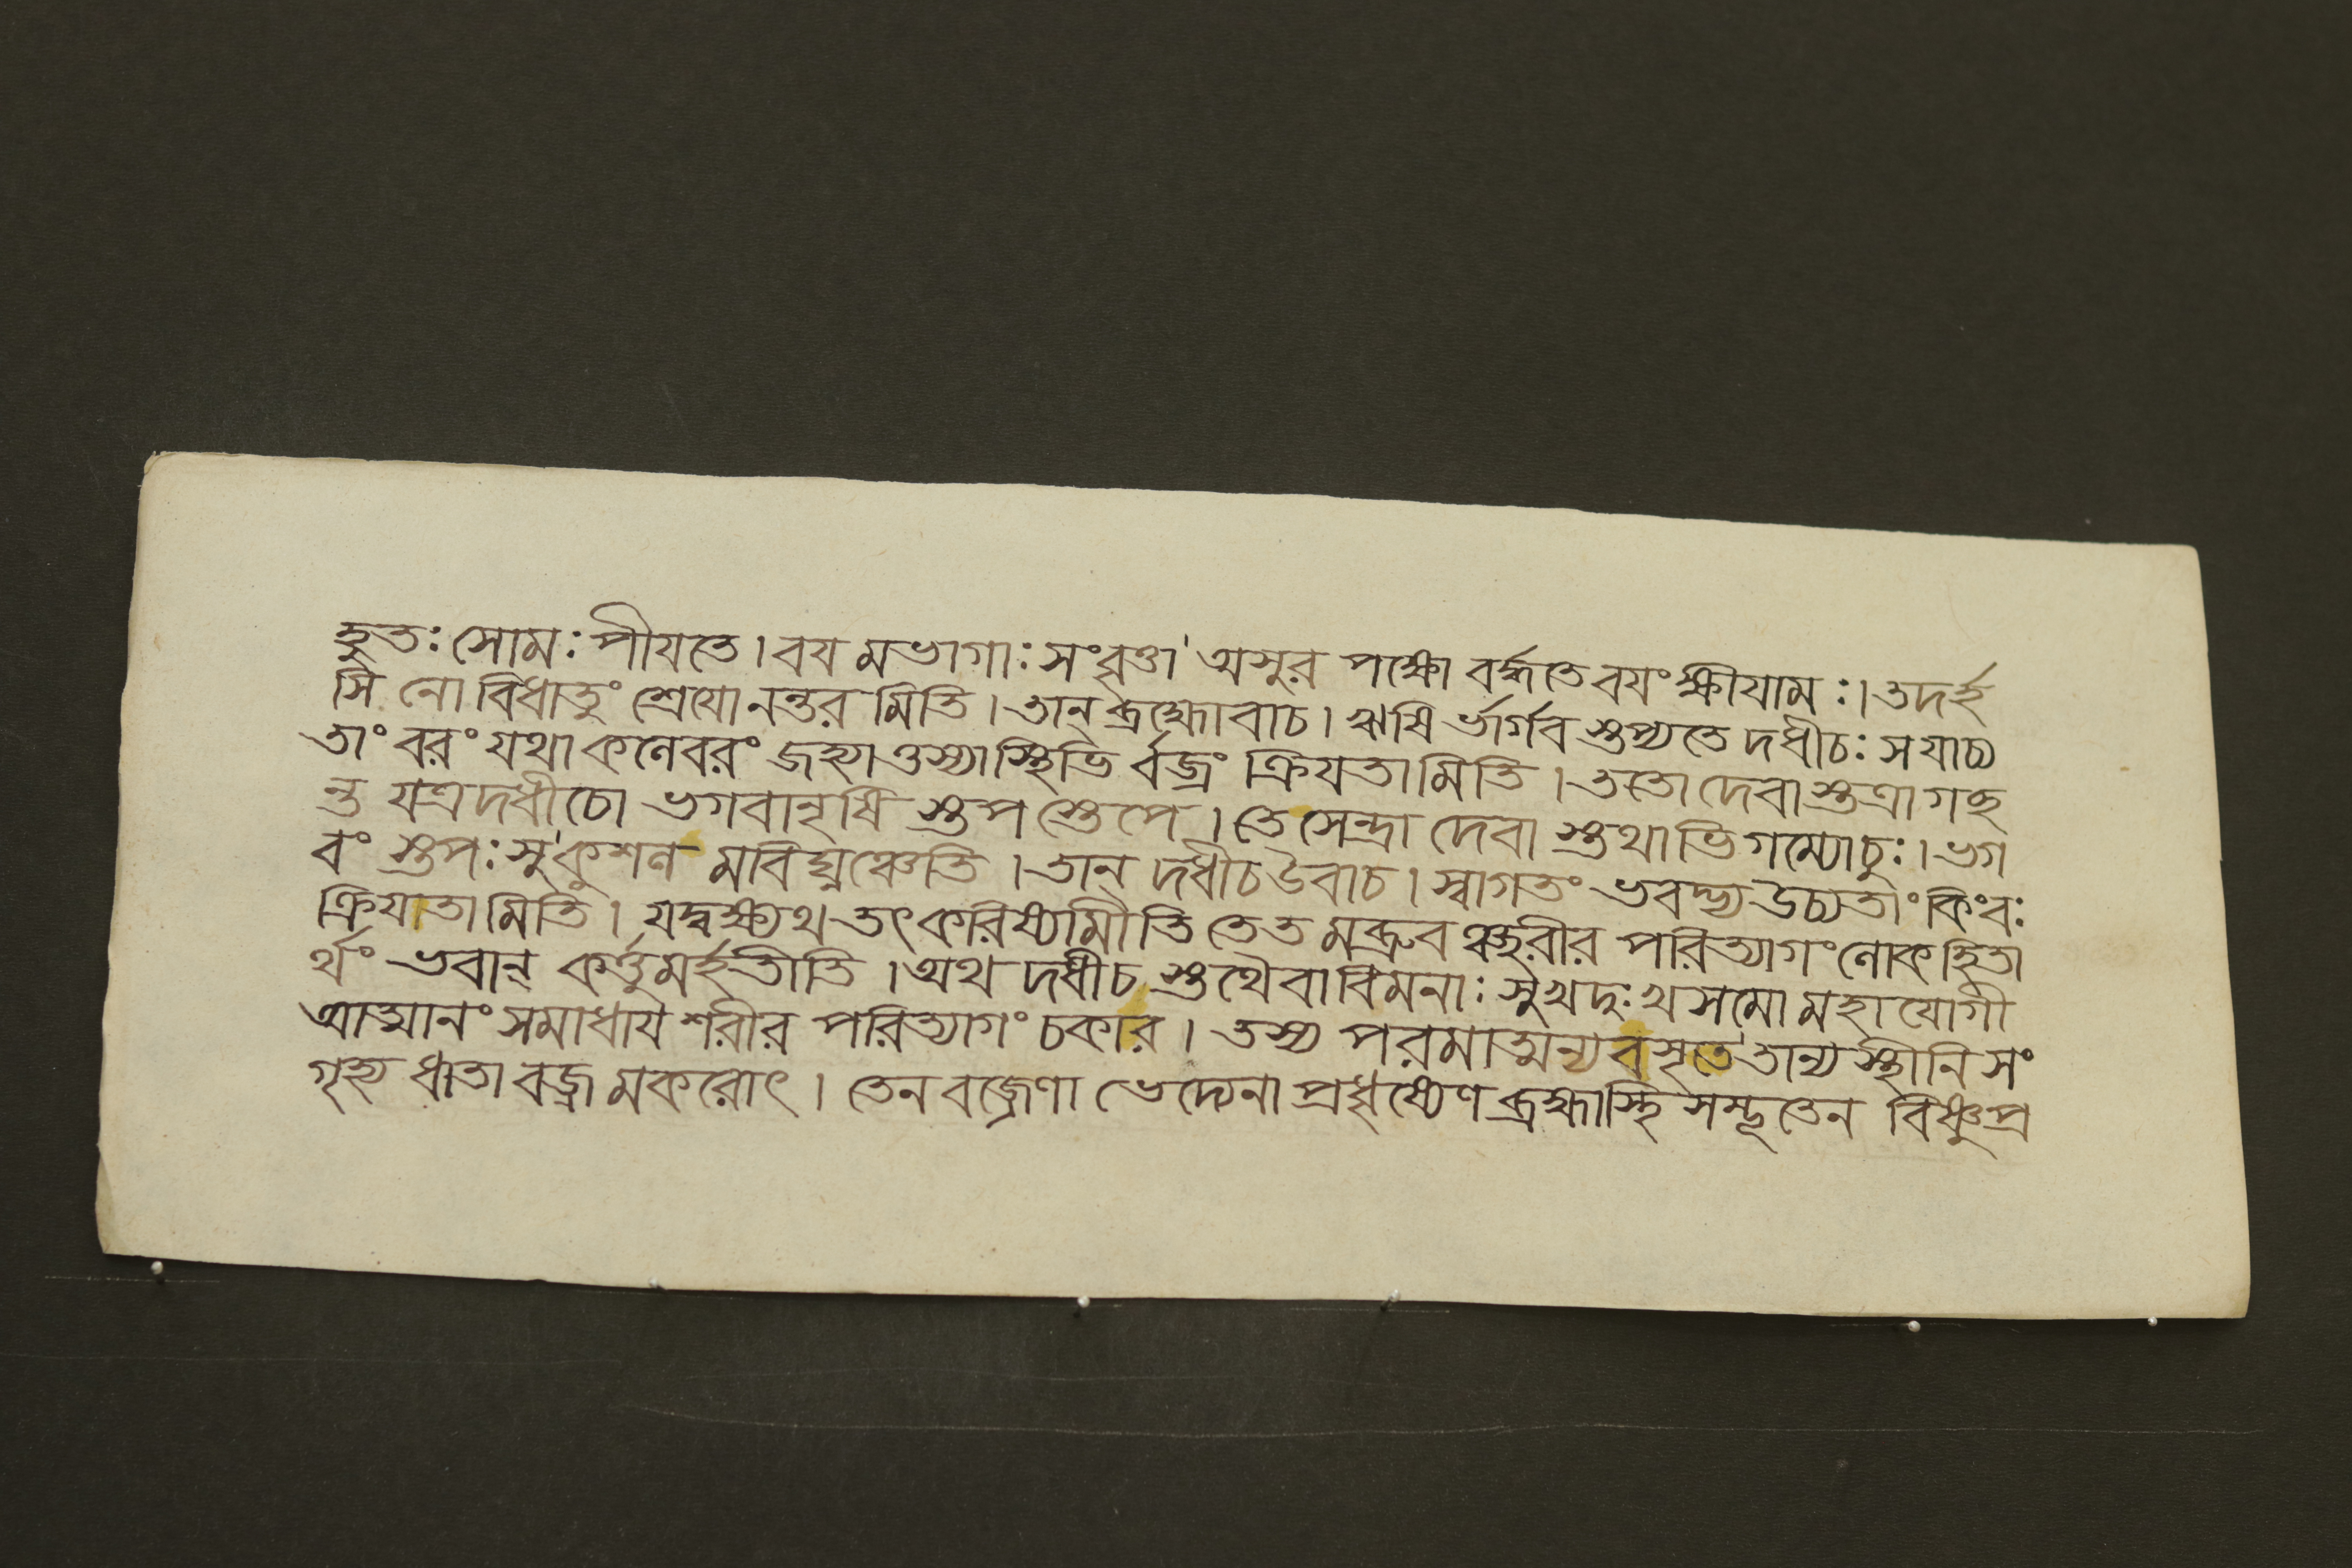 হুতঃ সোমঃ পীযতে। বয মভাগাঃ সংবৃত্তা অসুর পক্ষো বর্দ্ধতে বযং ক্ষীযামঃ। তদর্হ
সি নো বিধাতুং শ্রেযোনন্তর মিতি। তান্ ব্রহ্মোবাচ। ঋষি র্ভার্গব স্তপ্যতে দধীচঃ সযাচ্য
তাং বরং যথা কলেবরং জহ্যাত্তস্যাস্থিভি র্বজ্রং ক্রিযতামিতি। ততো দেবাস্তত্রাগচ্ছ
ন্ত যত্রদধীচো ভগবানৃষি স্তপ স্তেপে। তে সেন্দ্রা দেবা স্তথাভিগম্যোচুঃ। ভগ
বং স্তপঃ সুকুশল মবিঘ্নঞ্চেতি। তান্ দধীচ উবাচ। স্বাগতং ভবদ্ভ্য উচ্যতাং কিংবঃ
ক্রিযাতামিতি। যদ্বক্ষ্যথ তৎ করিষ্যামীতি তেত মব্রুব ঞ্ছরীর পরিত্যাগং লোকহিতা
র্থং ভবান্ কর্ত্তুমর্হতীতি। অথ দধীচ স্তথৈবাবিমনাঃ সুখদুঃখসমো মহাযোগী
আত্মানং সমাধায শরীর পরিত্যাগং চকার। তস্য পরমাত্মন্যবসৃতে তান্যস্থীনি সং
গৃহ্য ধাতা বজ্রমকরোৎ। তেন বজ্রেণাভেদ্যেনাপ্রধৃষ্যেণ ব্রহ্মাস্থিসম্ভূতেন বিষ্ণুপ্র